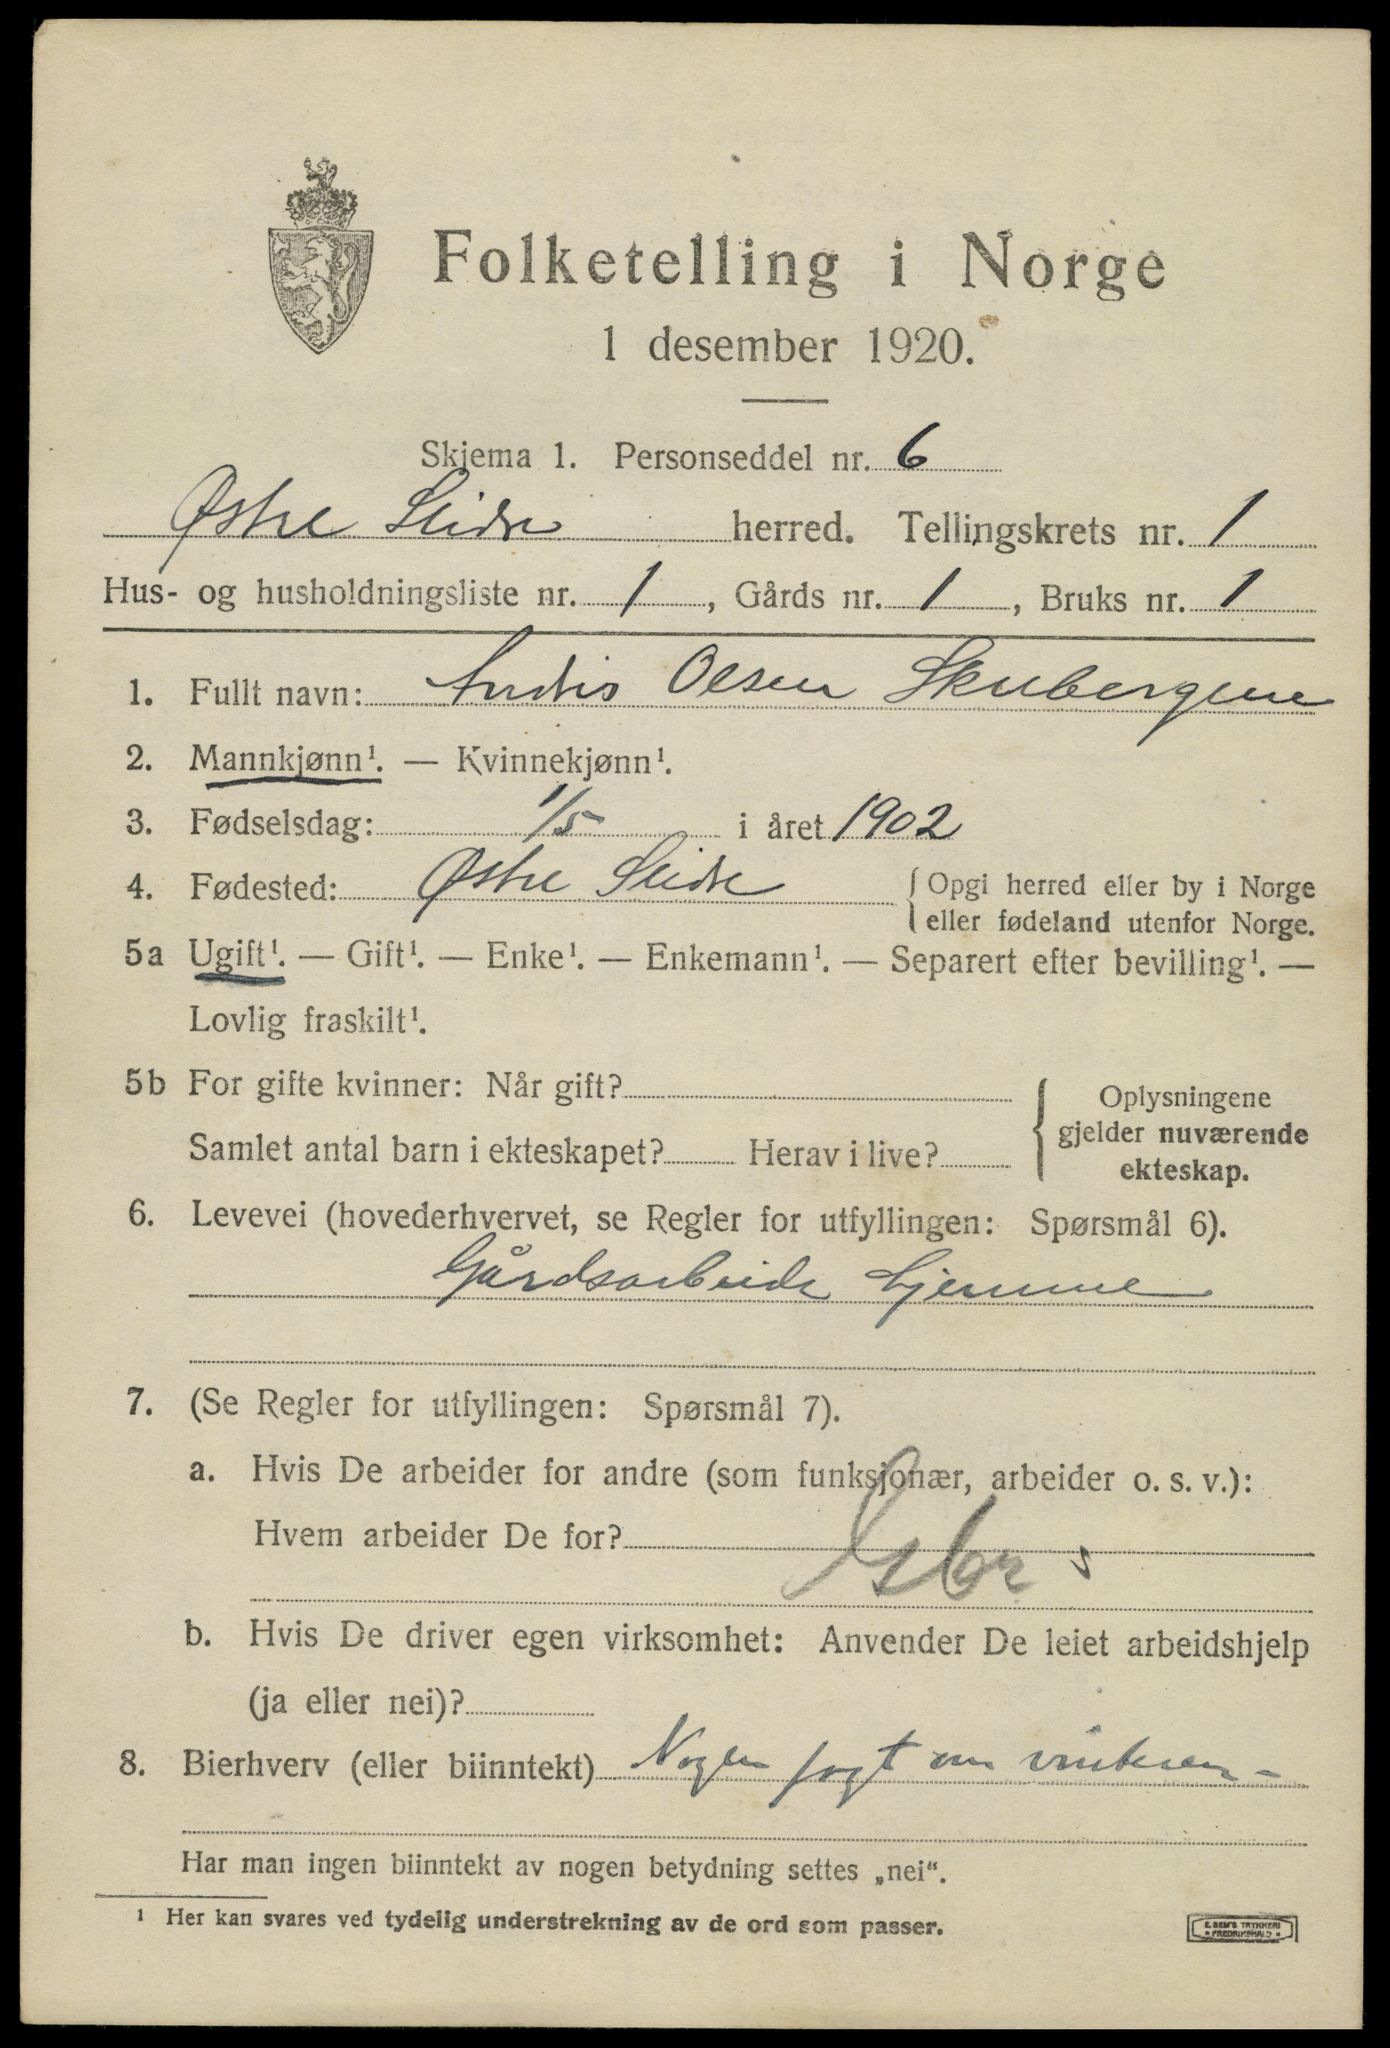 Folketelling i Norge
1 desember 1920.
Skjema 1. Personseddel nr. 6
Østre Slidre herred. Tellingskrets nr. 1
Hus- og husholdningsliste nr. 1, Gårds nr. 1, Bruks nr. 1
1. Fullt navn: Andris Olsen Skubergene
2. Mannkjønn¹. — Kvinnekjønn¹.
3. Fødselsdag: 1/5 i året 1902
4. Fødested: Østre Slidre { Opgi herred eller by i Norge
eller fødeland utenfor Norge.
5a Ugift¹. — Gift¹. — Enke¹. — Enkemann¹. — Separert efter bevilling¹. —
Lovlig fraskilt¹.
5b For gifte kvinner: Når gift?
Samlet antal barn i ekteskapet? Herav i live?
Oplysningene
gjelder nuværende
ekteskap.
6. Levevei (hovederhvervet, se Regler for utfyllingen: Spørsmål 6).
Gårdsarbeide hjemme
7. (Se Regler for utfyllingen: Spørsmål 7).
a. Hvis De arbeider for andre (som funksjonær, arbeider o. s. v.):
Hvem arbeider De for?
b. Hvis De driver egen virksomhet: Anvender De leiet arbeidshjelp
(ja eller nei)?
8. Bierhverv (eller biinntekt) Nogen jagt om vinteren-
Har man ingen biinntekt av nogen betydning settes „nei“.
¹ Her kan svares ved tydelig understrekning av de ord som passer.
E. SEM'S TRYKKERI
FREDRIKSHALD